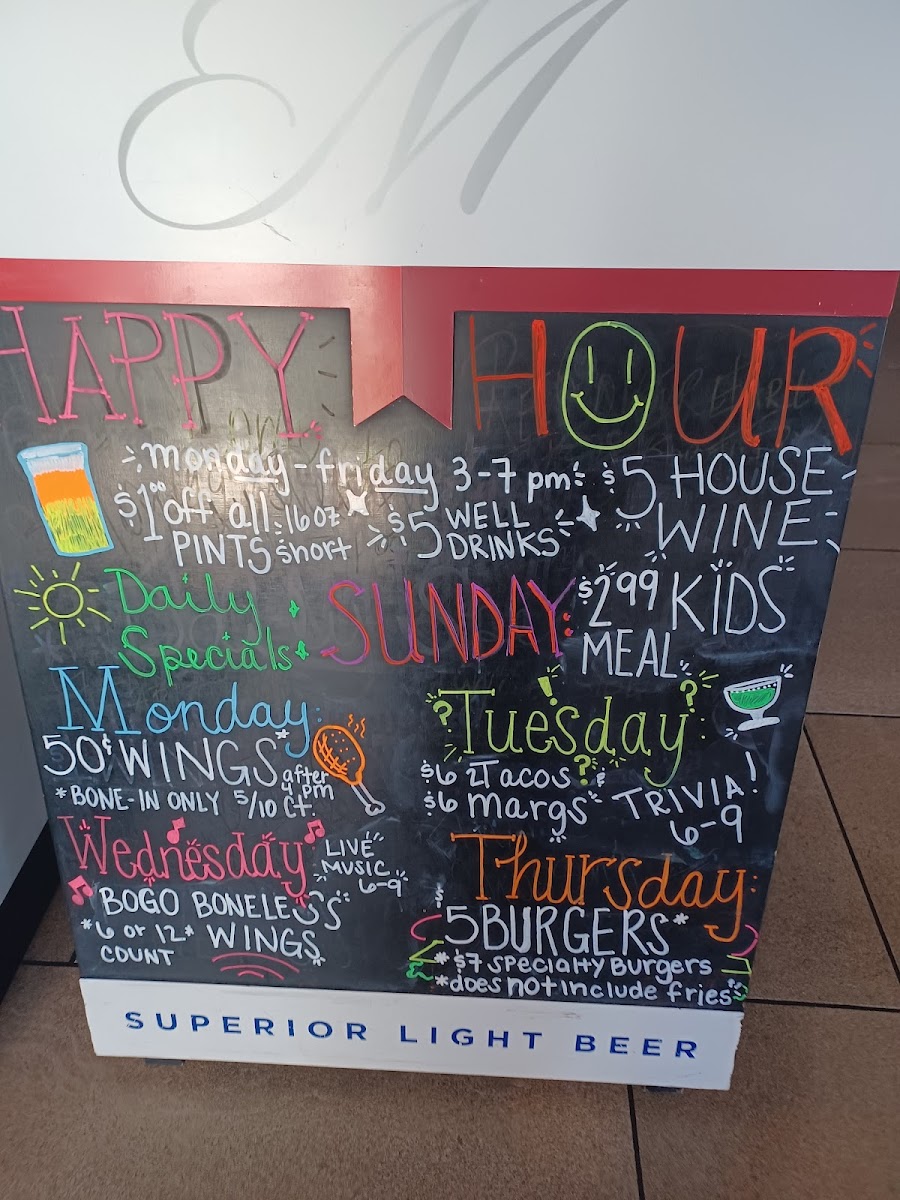 M
HAPPY HOUR
monday-friday 3-7 pm
$1.00 off all 16oz short PINTS
$5 WELL DRINKS
$5 HOUSE WINE
Daily Specials
SUNDAY:
$2.99 KIDS MEAL
Monday:
50¢ WINGS* after 4 pm
*BONE-IN ONLY 5/10 CT.
?Tuesday?:
$6 2Tacos &
$6 margs
TRIVIA!
6-9
Wednesday
LIVE MUSIC 6-9
BOGO BONELESS
*6 or 12* COUNT WINGS
Thursday:
$5 BURGERS*
*$7 Specialty Burgers
*does not include fries
SUPERIOR LIGHT BEER